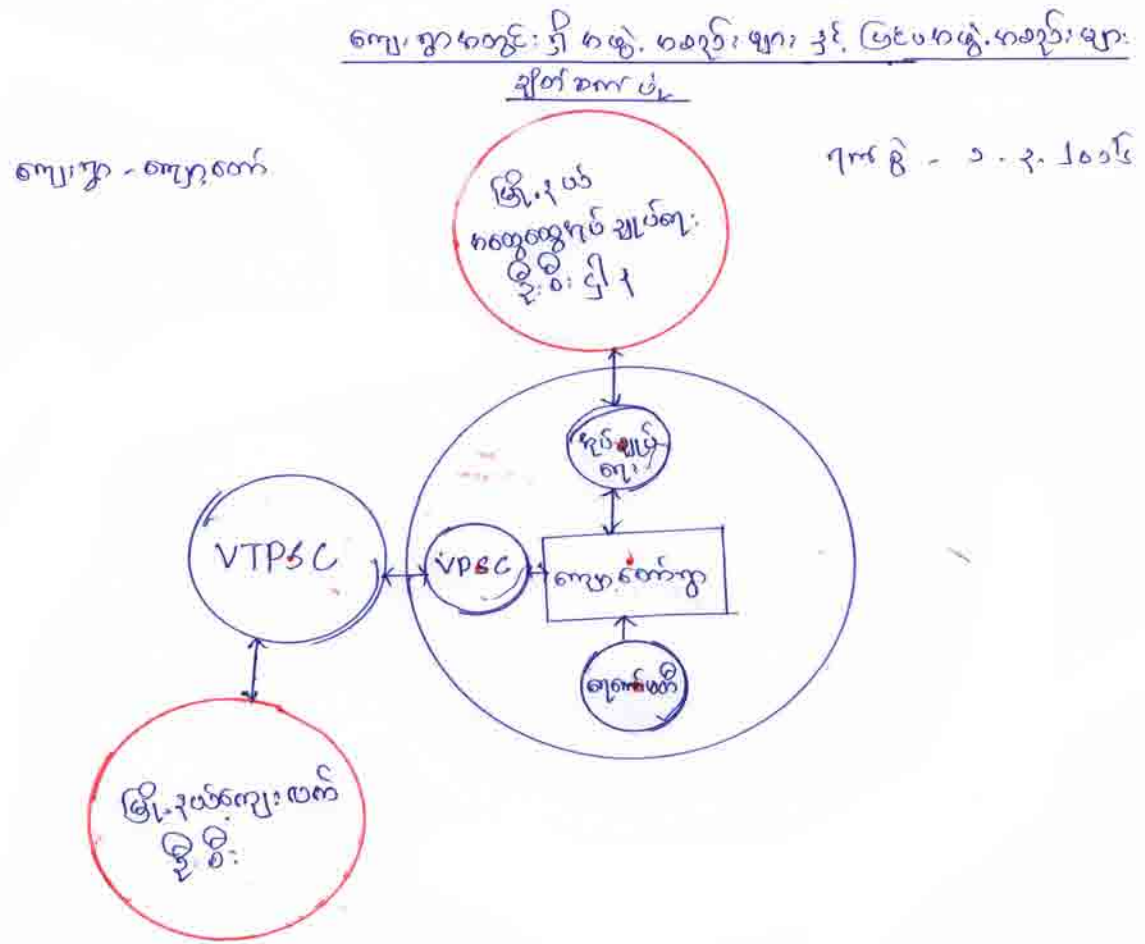 ကျေးရွာအတွင်းရှိ အဖွဲ့အစည်းများ နှင့် ပြင်ပအဖွဲ့အစည်းများ
ချိတ်ဆက်ပုံ
ကျေးရွာ - ကျော့တော်
ရက်စွဲ - ၁. ၃. ၂၀၁၆
မြို့နယ်
အထွေထွေအုပ်ချုပ်ရေး
ဦးစီးဌာန
အုပ်ချုပ်
ရေး
VTPSC
VPSC
ကျော့တော်ရွာ
ရေကော်မတီ
မြို့နယ်ကျေးလက်
ဦးစီး